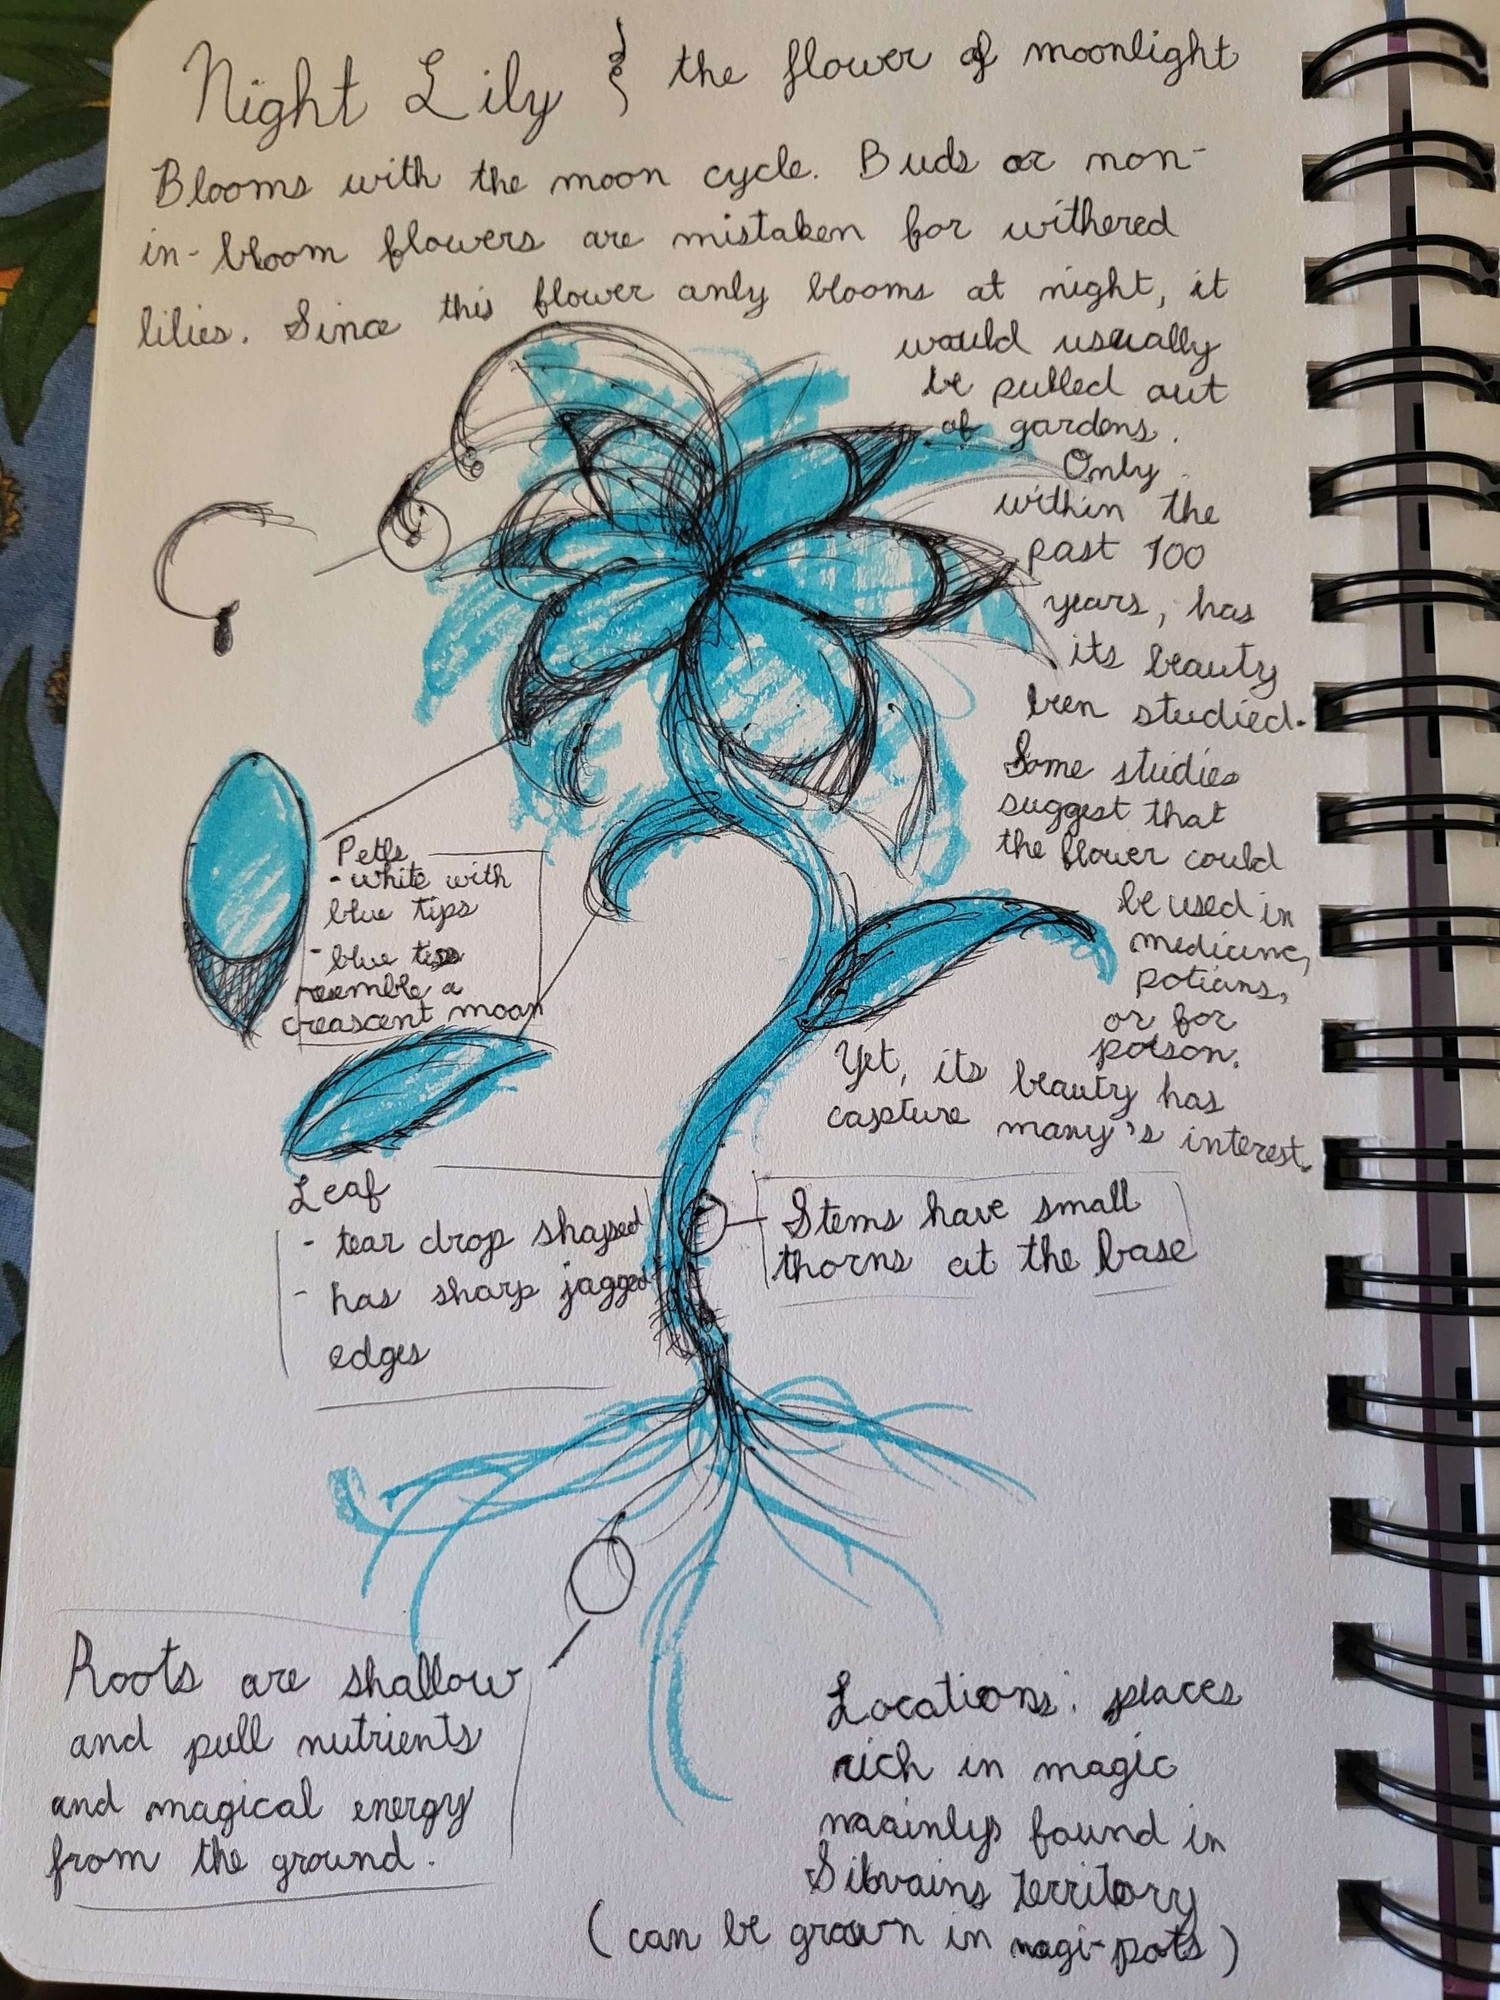 Night Lily & the flower of moonlight
Blooms with the moon cycle. Buds or non-
in-bloom flowers are mistaken for withered
lilies. Since this flower only blooms at night, it
would usually
be pulled out
of gardens.
Only
within the
past 100
years, has
its beauty
been studied.
Some studies
suggest that
the flower could
be used in
medicine,
potions,
or for
poison.
Yet, its beauty has
capture many's interest.
Petls
- white with
blue tips
- blue tips
resemble a
creascent moon
Leaf
- tear drop shaped
- has sharp jagged
edges
Stems have small
thorns at the base
Roots are shallow
and pull nutrients
and magical energy
from the ground.
Locations: places
rich in magic
mainly found in
territory
(can be grown in magi-pots)